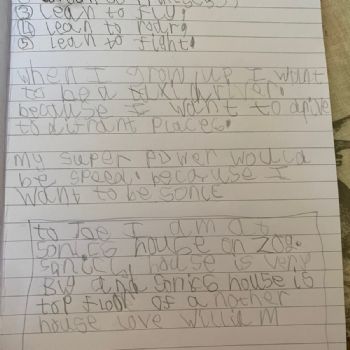 ③ lean to fly.
④ lean to roar.
⑤ lean to fight.
when I grow up I want
to be a taxi driver.
because I want to drive
to difrant places.
my super power would
be speed. because I
want to be sonic
to Joe I am at
sonics house on 208.
sonics house is very
Big and sonics house is
top floor of a nother
house love William